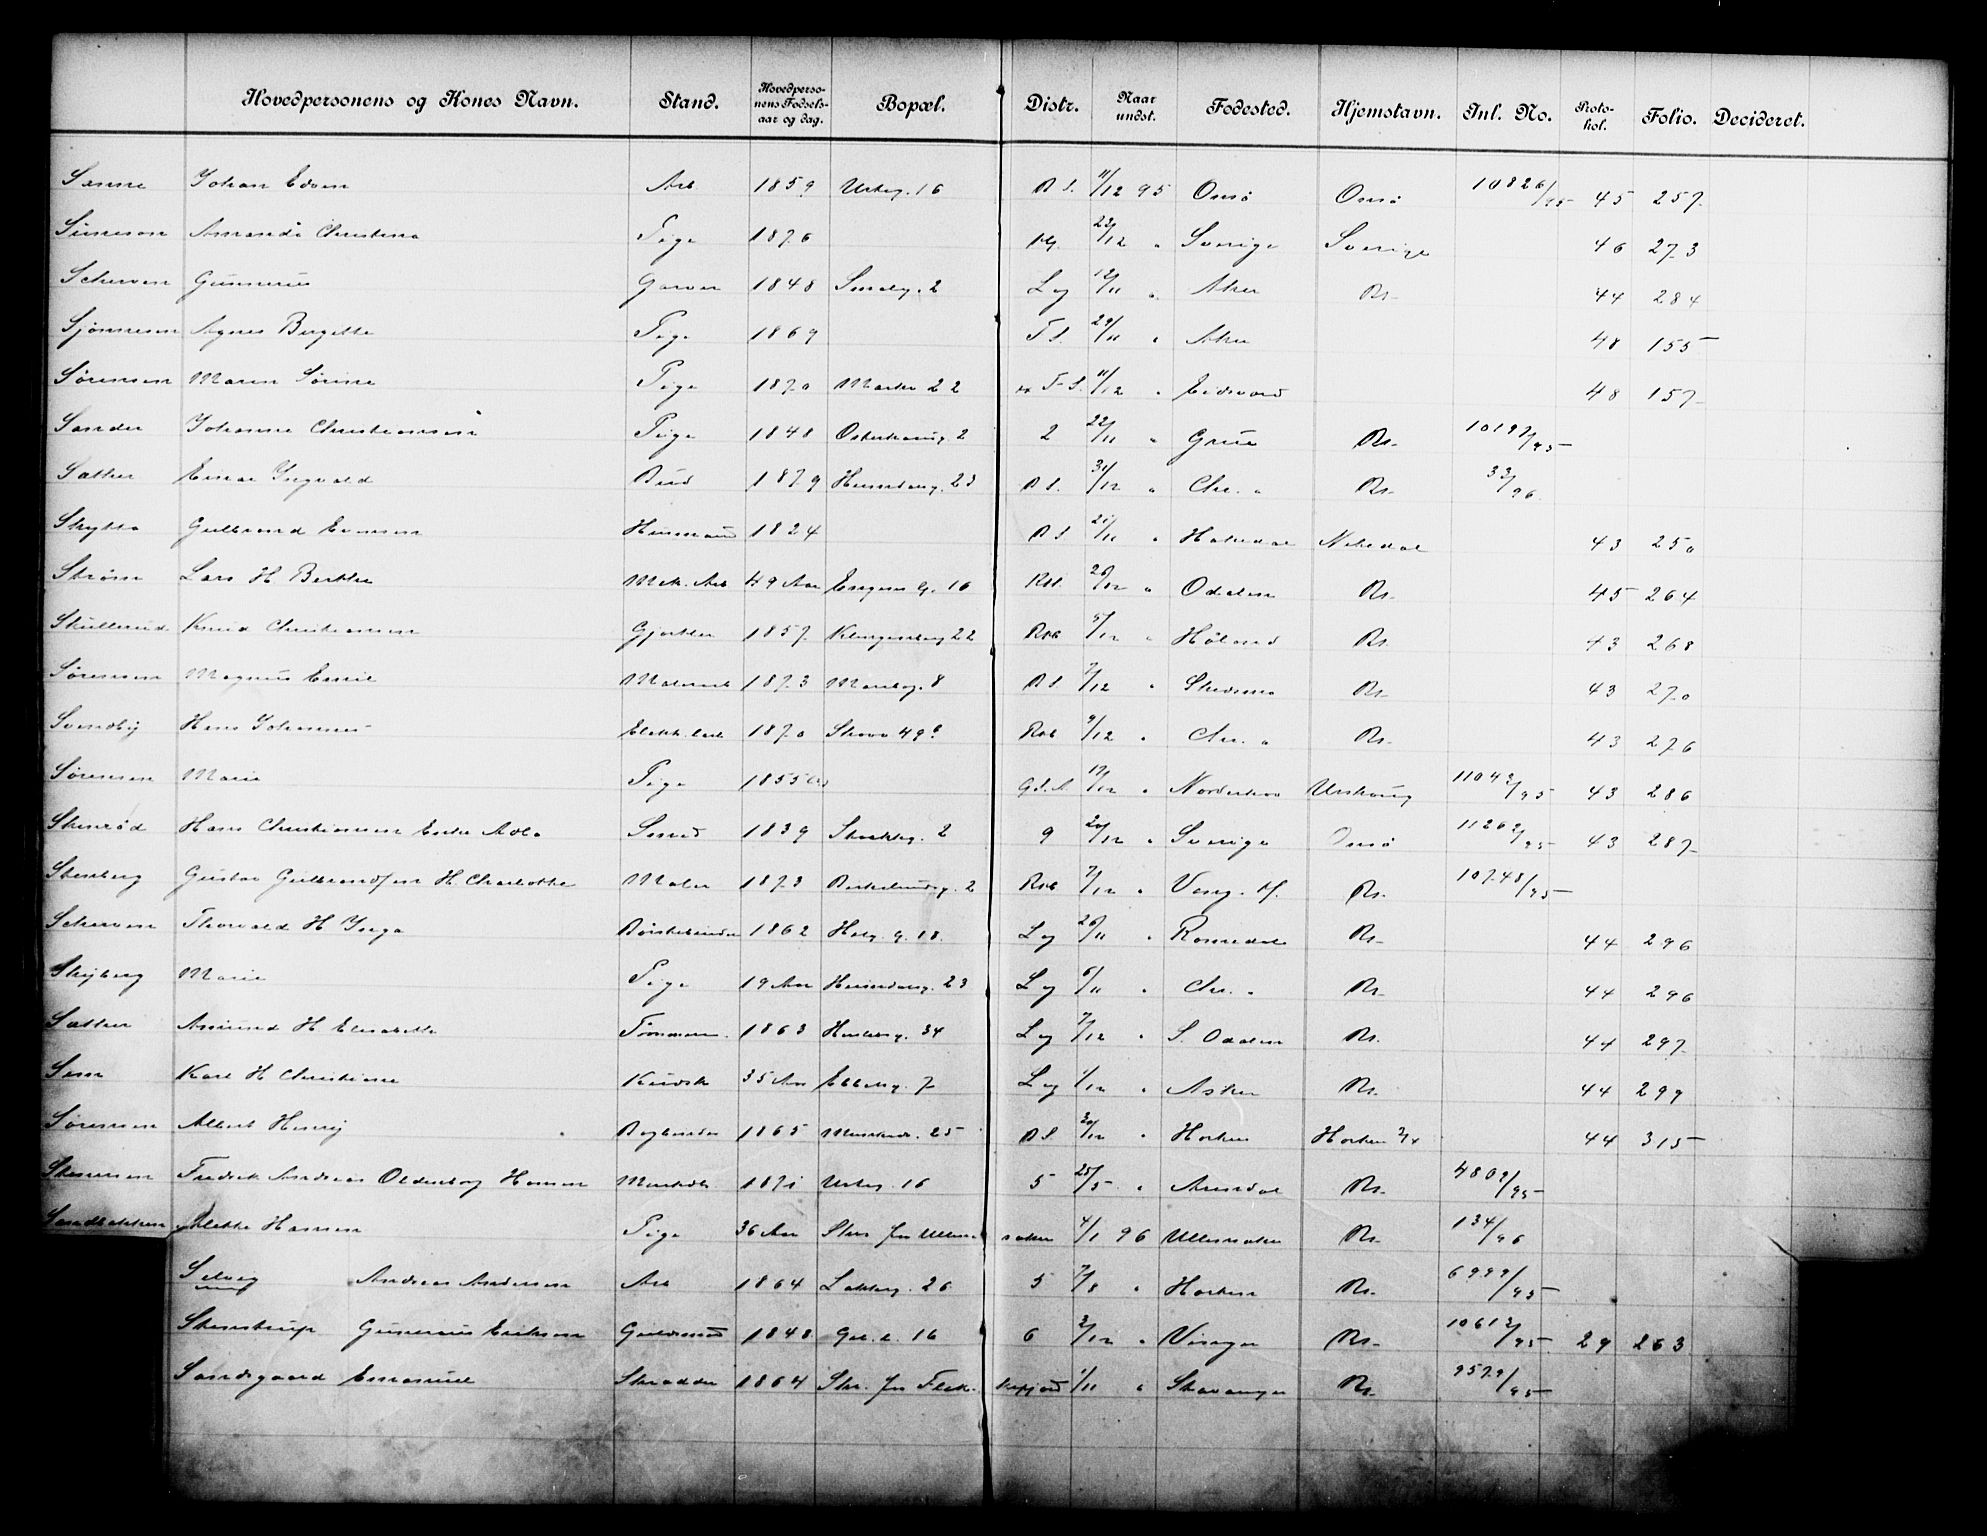 Hovedpersonens og Kones Navn. Stand. Hovedpersonens Fødselsaar og dag. Bopæl. Distr. Naar undst. Fødested. Hjemstavn. Inl. No. Protokol. Folio. Decideret.
Sanne Johan Edvin Arb 1859 Urteg. 16 B S. 11/12 95 Onsø Onsø 10826/95 45 257
Simeson Amanda Christina Pige 1876 22/12 " Sverige Sverige 46 273
Scherven Gunnerius Garver 1848 Smalg. 2 Lg 12/11 " Aker Bs. 44 284
Sjønnesen Agnes Birgitte Pige 1869 F S. 29/11 " Aker 48 155
Sørensen Maren Sørine Pige 1870 Markv 22 F S. 11/12 " Eidsvold 48 157
Sander Johanne Christiansen Pige 1848 Osterhausg. 2 2 22/11 " Grue Bs. 10197/95
Sæther Einar Ingvald Bud 1879 Heimdalsg. 23 B S. 31/12 " Chr. " Bs. 33/96
Skytta Gulbrand Evensen Husmand 1824 B S 21/11 " Hakedal Nitedal 43 250
Strøm Lars H Berthe Mek. Arb 49 Aar Engens G. 16 26/12 " Odalen Bs. 45 264
Skullerud Knud Christiansen Gjørtler 1857 Klingenberg 22 Rob 5/12 " Høland Bs. 43 268
Sørensen Magnus Emil Malersv 1873 Maribog. 8 B S. 7/12 " Skedsmo Bs. 43 270
Svendby Hans Johannes 1870 Skovv 49 Rob 9/12 " Chr. " Bs. 43 276
Sørensen Marie Pige 1855 17/12 " Norderhov Urskoug 11042/95 43 286
Stenrød Hans Christiansen Enke Ada Smed 1839 Storkleg. 2 9 20/12 " Sverige Onsø 11262/95 43 287
Stenberg Gustav Gulbrandsen H. Charlotte Maler 1873 Birkelundsg. 2 Rob 7/12 " Vang. H. Bs. 10748/95
Scherven Thorvald H Inga Børstebinder 1862 Helg. G. 18. Lg 26/11 " Romedal Bs. 44 296
Stryberg Marie Pige 19 Aar Heimdalsg. 23 Lg 6/11 " Chr. " Bs. 44 296
Sæther Amund H Elisabeth Tømmerm. 1863 Hauleg. 34 Lg 7/12 " S. Odalen Bs. 44 297
Sem Karl H Christiane Kudsk 35 Aar Ebbelsg. 7 Lg 1/12 " Asker Bs. 44 299
Sørensen Albert Henry Bogbinder 1865 Munkedv. 25 B S. 30/12 " Horten Horten 44 315
Stenersen Fredrik Andreas Oldenborg Hansen 1871 Urteg. 16 5 25/5 " Arendal Bs. 4802/95
Sandbakken Mette Hansen Pige 36 Aar Skr. fra Ullensaker 4/1 96 Ullensaker Bs. 134/96
Selvig Andreas Andersen Arb 1864 Lakkeg. 26 5 7/8 " Horten Bs. 6999/95
Stenstrup Gunerius Eriksen Guldsmed 1848 16 6 2/12 " Vinger Bs. 10612/95 29 263
Sandsgaard Emanuel Skrædder 1864 Skr. fra Flekkefjord 1/11 " Stavanger Bs. 9579/95